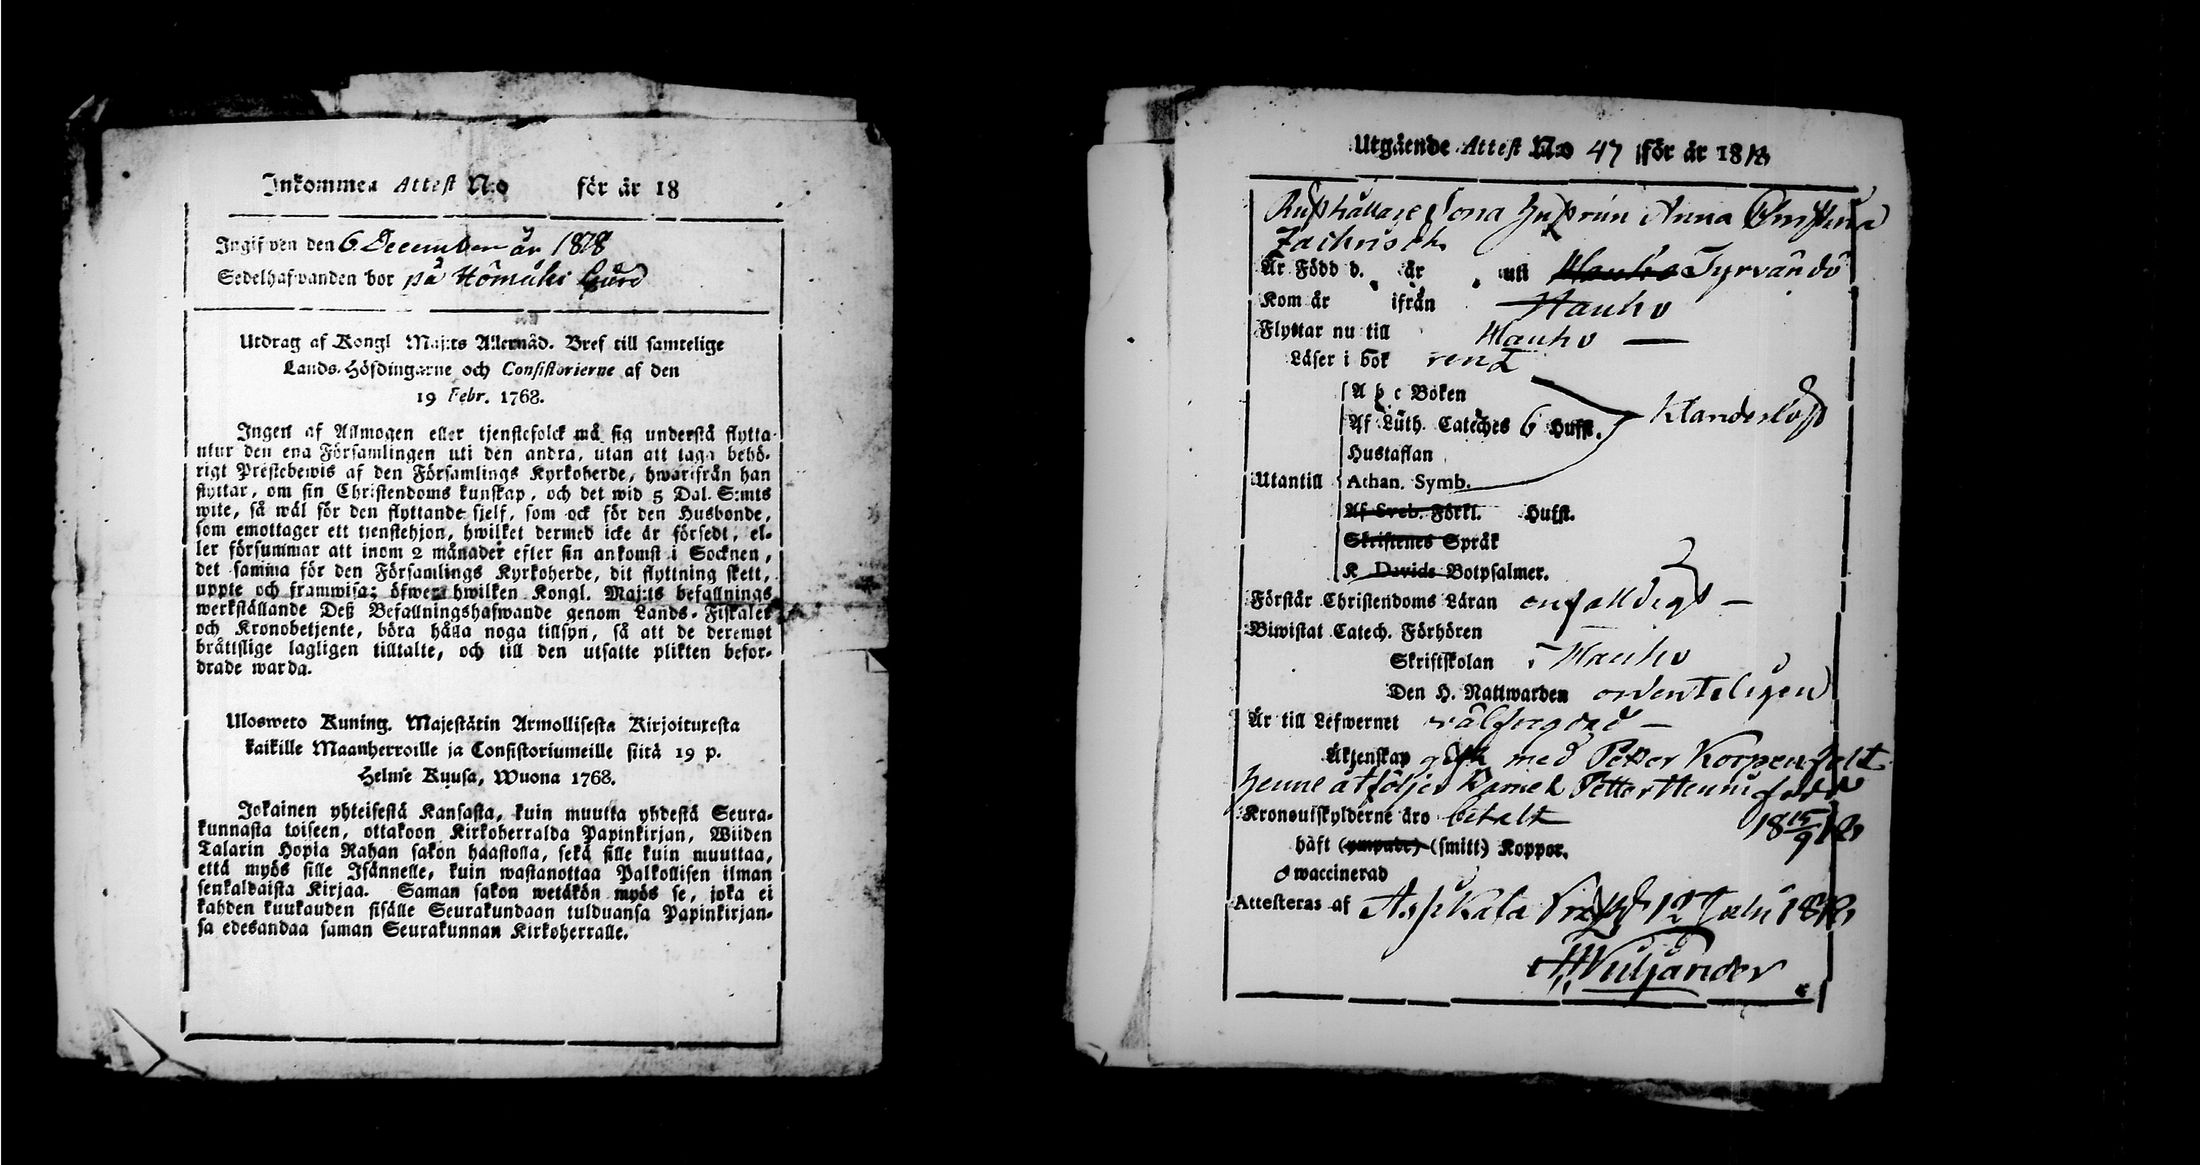 Inkommen Attest N:o för år 18
Ingifven den 6 December år 1818
Sedelhafvanden bor på Hömäki Gård
Utdrag af Kongl Maj:ts Allernåd. Bref till samtelige
Lands-Höfdingarne och Consistorierne af den
19 Febr. 1768.
Ingen af Allmogen eller tjenstefolck må sig understå flytta
utur den ena Församlingen uti den andra, utan att taga behö-
rigt Prestebewis af den Församlings Kyrkoherde, hwarifrån han
flyttar, om sin Christendoms kunskap, och det wid 5 Dal. S:mts
wite, så wäl för den flyttande sjelf, som ock för den Husbonde,
som emottager ett tjenstehjon, hwilket dermed icke är försedt, el-
ler försummar att inom 2 månader efter sin ankomst i Socknen,
det samma för den Församlings Kyrkoherde, dit flyttning skett,
uppte och framwisa; öfwer hwilken Kongl. Maj:ts befallnings
werkställande Deß Befallningshafwande genom Lands-Fiskaler
och Kronobetjente, böra hålla noga tillsyn, så att de deremot
bråttslige lagligen tilltalte, och till den utsatte plikten befor-
drade warda.
Ulosweto Kuning. Majestätin Armollisesta Kirjoituxesta
kaikille Maanherroille ja Consistoriumeille siitä 19 p.
Helmie Kuusa, Wuona 1768.
Jokainen yhteisestä Kansasta, kuin muutta yhdestä Seura-
kunnasta toiseen, ottakoon Kirkoherralda Papinkirjan, Wiiden
Talarin Hopia Rahan sakon haastolla, sekä sille kuin muuttaa,
että myös sille Isännelle, kuin wastanottaa Palkollisen ilman
senkaldaista Kirjaa. Saman sakon wetäkön myös se, joka ei
kahden kuukauden sisälle Seurakundaan tulduansa Papinkirjan-
sa edesandaa saman Seurakunnan Kirkoherralle.
Utgående Attest N:o 47 för år 1818
Rusthållare Sona Hustrun Anna Christina
Zachrisdr
Är Född d. år uti Hauho Tyrvändö
Kom år ifrån Hauho
Flyttar nu till Hauho —
Läser i bok rent
A b c Boken
Af Luth. Cateches 6 Hufst. Klanderlöst
Hustaflan
Utantill Athan. Symb.
Af Sveb. Förkl. Hufst.
Skriftenes Språk
K Davids Botpsalmer.
Förstår Christendoms Läran enfalldigt —
Biwistat Catech. Förhören
Skriftskolan i Hauho
Den H. Nattwarden ordenteligen
Är till Lefwernet välfregdad —
Äktenskap gift med Petter Korpenfelt
henne åtföljer Barnet Petter Henric född
Kronoutskylderne äro betalt 18 15/9 18
häft (ympade) (smitt) Koppor.
waccinerad
Attesteras af Asikala Prestg. 12 Julii 1818
Wiljander